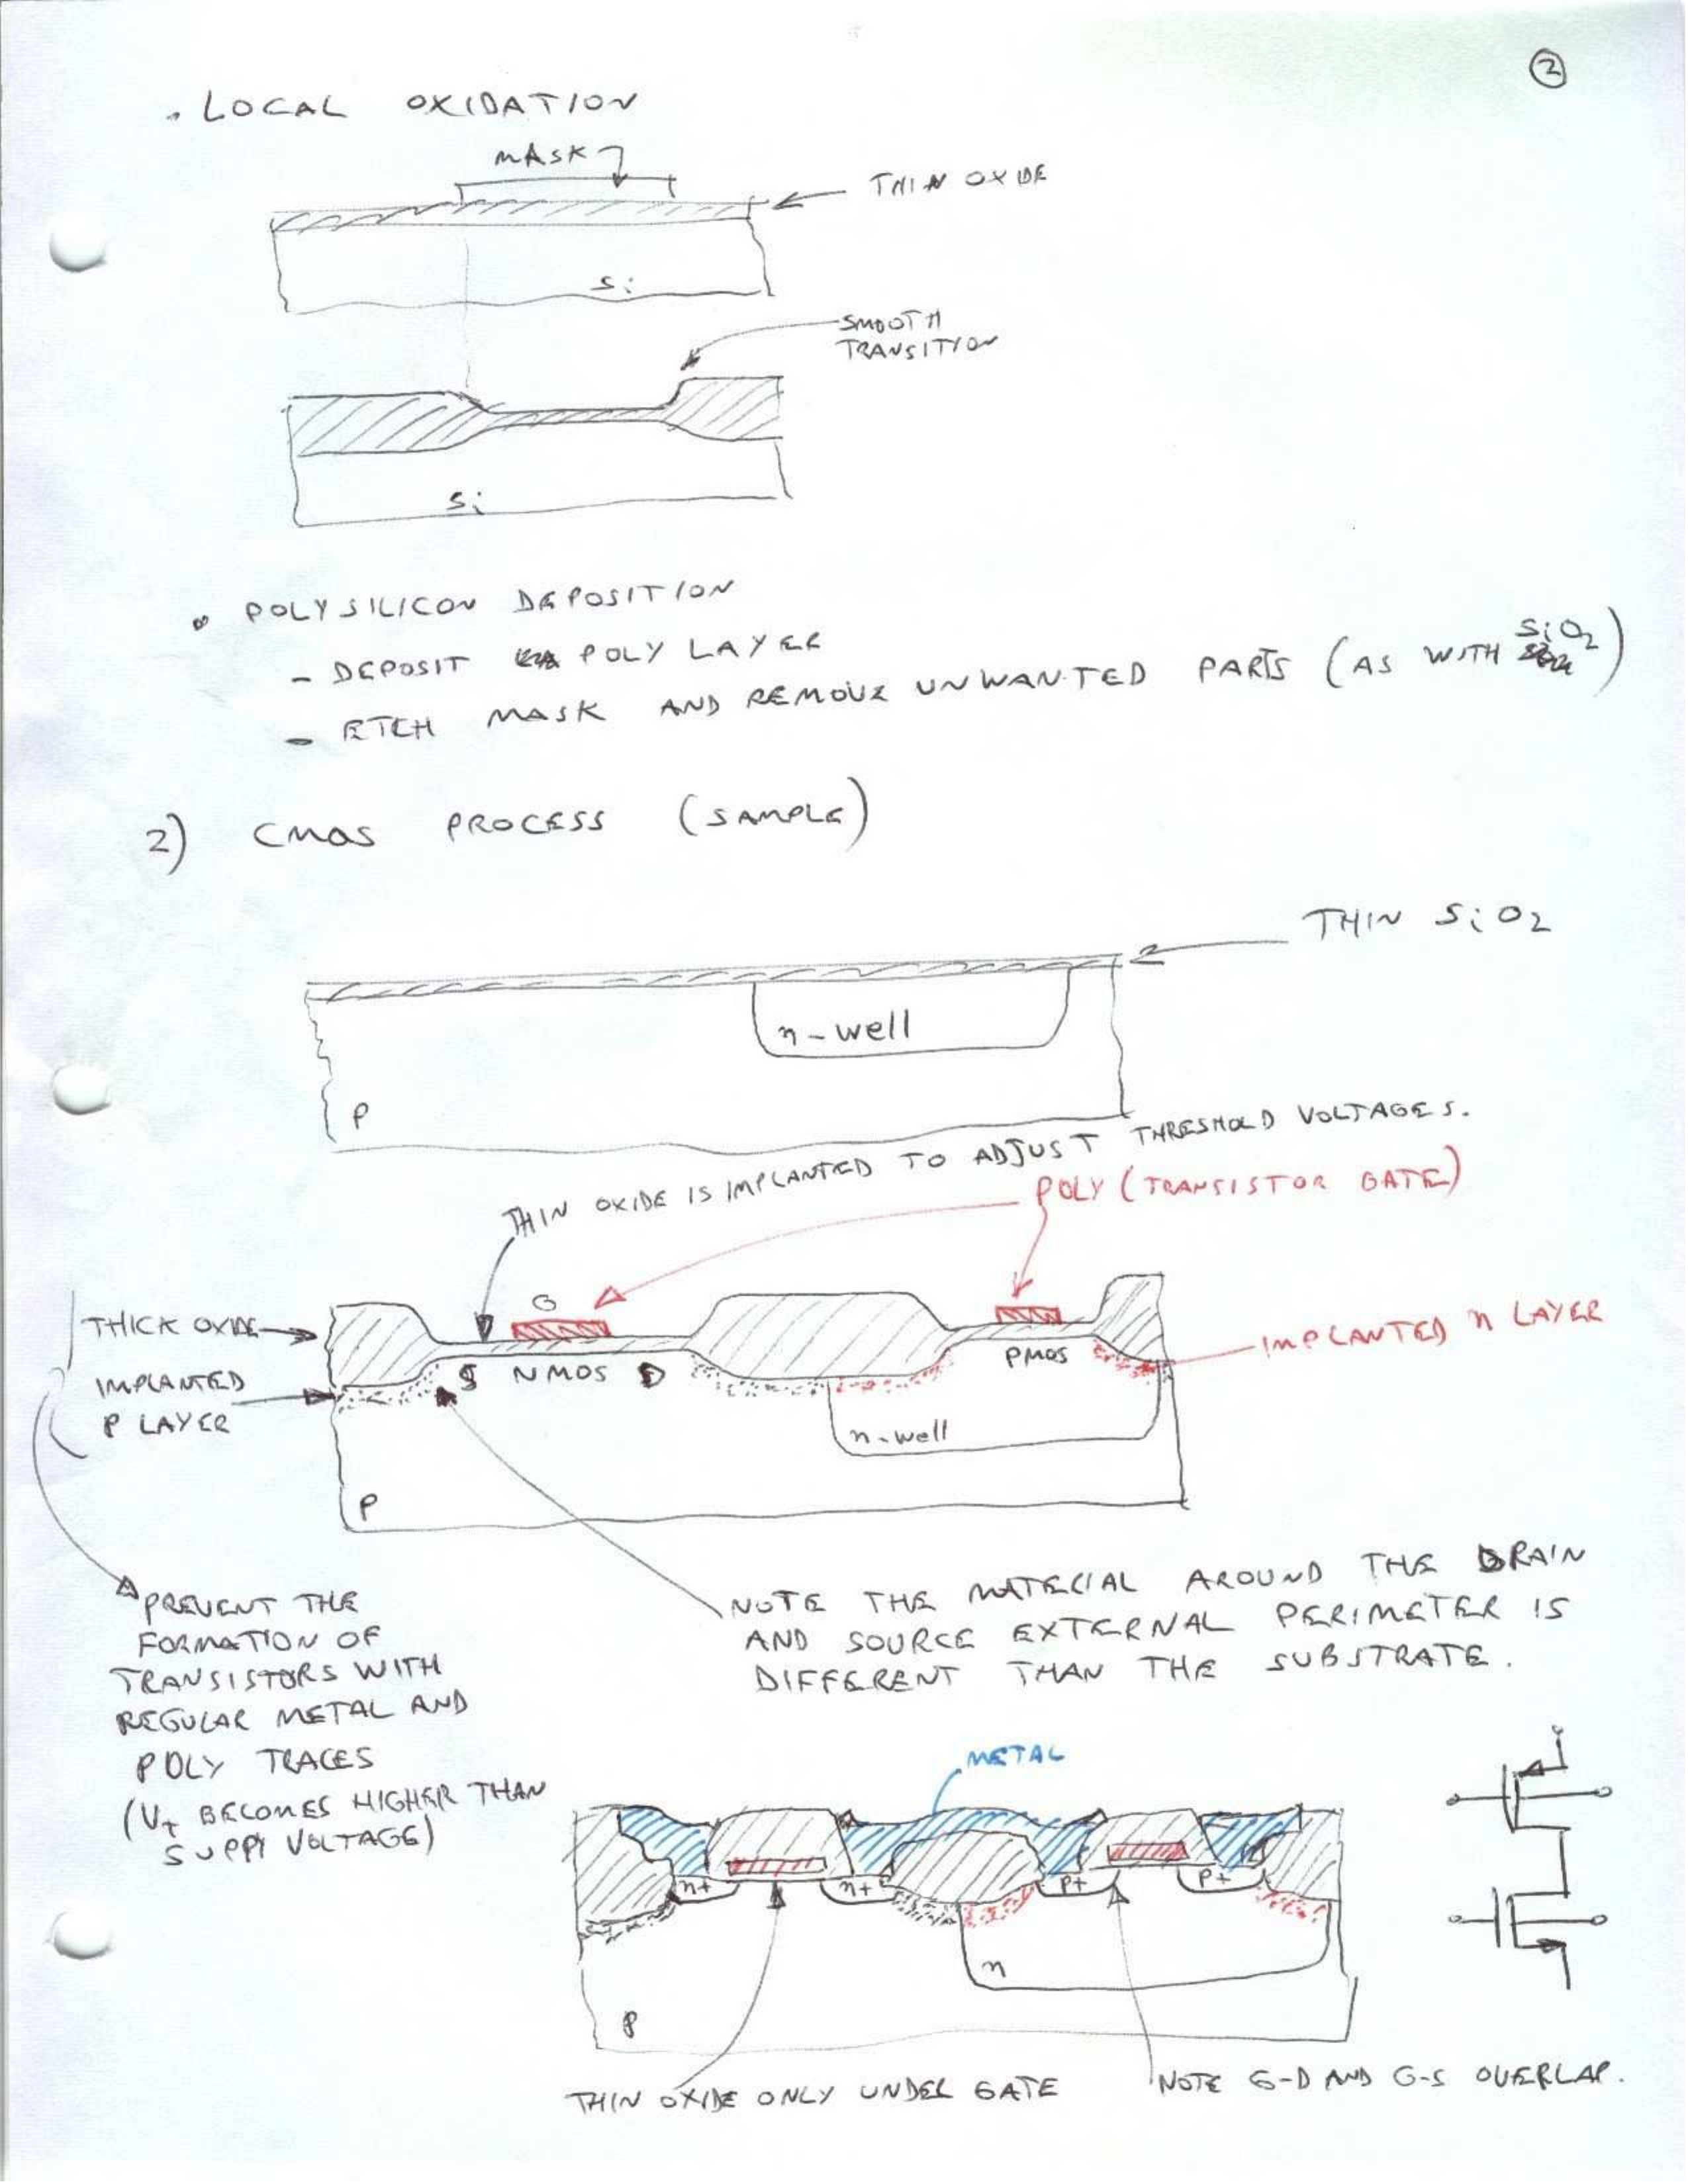 ②
. LOCAL OXIDATION
MASK
THIN OXIDE
Si
SMOOTH
TRANSITION
Si
• POLYSILICON DEPOSITION
- DEPOSIT POLY LAYER
- ETCH MASK AND REMOVE UNWANTED PARTS (AS WITH SiO2)
2) CMOS PROCESS (SAMPLE)
THIN SiO2
n-well
P
THIN OXIDE IS IMPLANTED TO ADJUST THRESHOLD VOLTAGES.
POLY (TRANSISTOR GATE)
G
THICK OXIDE
S NMOS D
PMOS
IMPLANTED n LAYER
IMPLANTED
P LAYER
n-well
P
PREVENT THE
FORMATION OF
TRANSISTORS WITH
REGULAR METAL AND
POLY TRACES
(VT BECOMES HIGHER THAN
SUPPY VOLTAGE)
NOTE THE MATERIAL AROUND THE DRAIN
AND SOURCE EXTERNAL PERIMETER IS
DIFFERENT THAN THE SUBSTRATE.
METAL
n+ n+ P+ P+
n
P
THIN OXIDE ONLY UNDER GATE
NOTE G-D AND G-S OVERLAP.